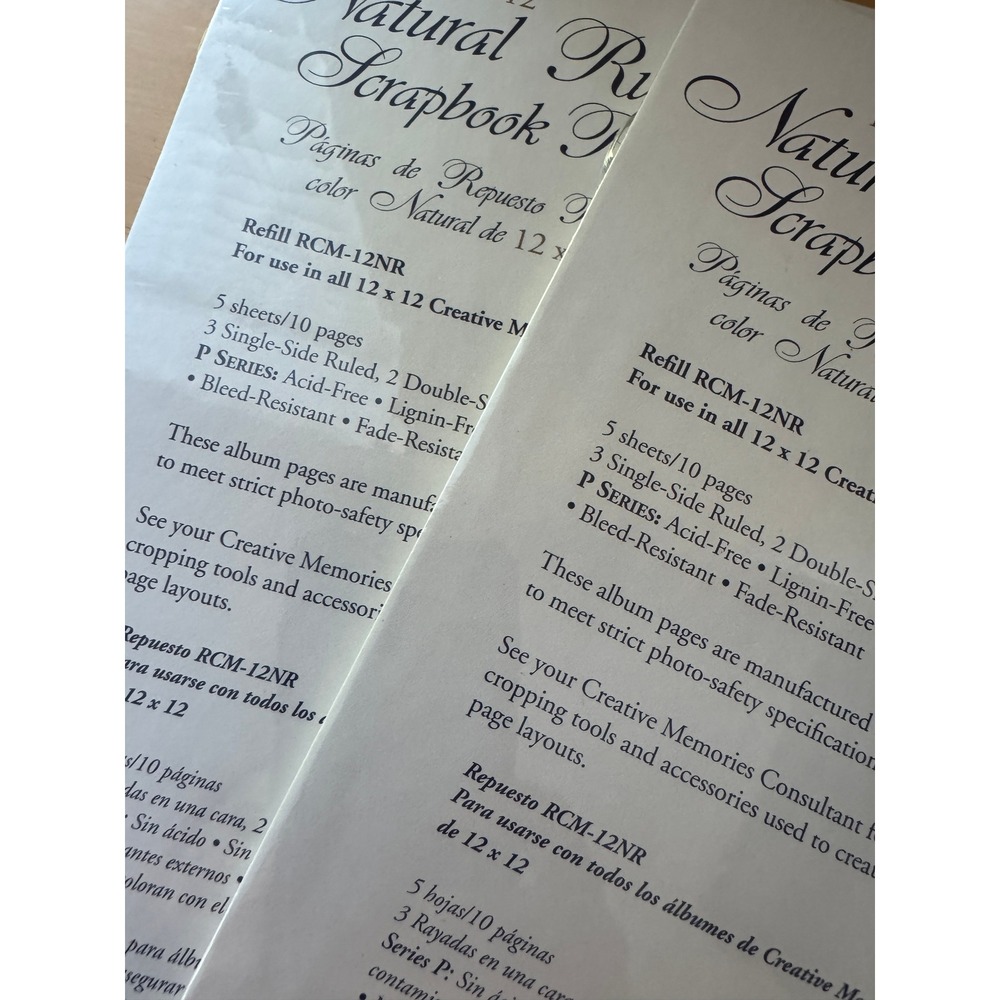 12
Natural
Scrapbook
Páginas de Repuesto
color Natural de 12 x
Refill RCM-12NR
For use in all 12 x 12 Creative
5 sheets/10 pages
3 Single-Side Ruled, 2 Double-S
P SERIES: Acid-Free • Lignin-Fr
• Bleed-Resistant • Fade-Resista
These album pages are manufa
to meet strict photo-safety spe
See your Creative Memories
cropping tools and accessori
page layouts.
Repuesto RCM-12NR
ara usarse con todos los
12 x 12
s/10 páginas
das en una cara, 2
Sin ácido • Sin
antes externos •
oloran con el
para álb
segurar
Natur
Scrapb
Páginas de
color Natural
Refill RCM-12NR
For use in all 12 x 12 Creat
5 sheets/10 pages
3 Single-Side Ruled, 2 Double-S
P SERIES: Acid-Free • Lignin-Free
• Bleed-Resistant • Fade-Resistant
These album pages are manufactured
to meet strict photo-safety specification
See your Creative Memories Consultant f
cropping tools and accessories used to creat
page layouts.
Repuesto RCM-12NR
Para usarse con todos los álbumes de Creative Me
de 12 x 12
5 hojas/10 páginas
3 Rayadas en una cara
Series P: Sin ác
contami